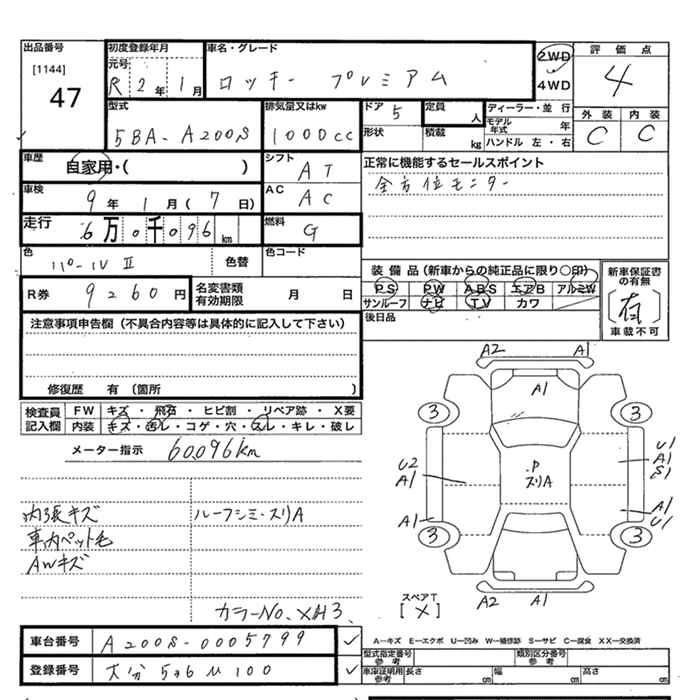 出品番号
[1144]
47
初度登録年月
元号
R 2 年 1 月
車名・グレード
ロッキー プレミアム
2WD
4WD
評価点
4
外装 内装
C C
型式
5BA-A200S
排気量又はkw
1000cc
ドア 5
形状
定員 人
積載 kg
ディーラー・並行
モデル年式 年
ハンドル 左・右
車歴
自家用・( )
シフト
AT
正常に機能するセールスポイント
全方位モニター
車検
9 年 1 月 ( 7 日)
AC
AC
走行
6 万 0 千 096 km
燃料
G
色
パールⅣⅡ
色替
色コード
R券 9260 円
名変書類有効期限 月 日
装備品(新車からの純正品に限り○印)
PS PW ABS エアB アルミW
サンルーフ ナビ TV カワ
後日品
新車保証書の有無
(有)
車載不可
注意事項申告欄(不具合内容等は具体的に記入して下さい)
修復歴 有 (箇所 )
検査員記入欄
FW キズ・飛石・ヒビ割・リペア跡・X要
内装 キズ・汚レ・コゲ・穴・スレ・キレ・破レ
メーター指示 60,096km
内張キズ
車内ペット毛
AWキズ
ルーフシミ・スリA
カラーNo、XH3
A2 A1
A1
3 3
U2
A1
P
スリA
U1
A1
S1
A1
A1
U1
3 3
スペアT
[×]
A2 A1
A-キズ E-エクボ U-凹み W-補修跡 S-サビ C-腐食 XX-交換済
車台番号 A200S-0005799
登録番号 大分 506 い 100
型式指定番号 参考
類別区分番号 参考
車庫証明用 参考 長さ cm 幅 cm 高さ cm